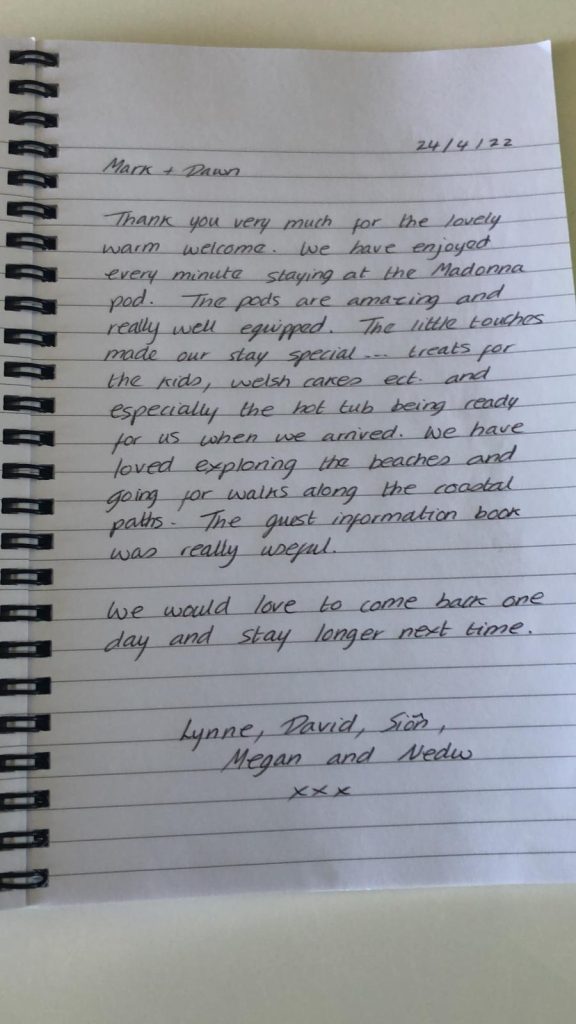 24/4/22
Mark + Dawn
Thank you very much for the lovely
warm welcome. We have enjoyed
every minute staying at the Madonna
pod. The pods are amazing and
really well equipped. The little touches
made our stay special... treats for
the kids, welsh cakes ect. and
especially the hot tub being ready
for us when we arrived. We have
loved exploring the beaches and
going for walks along the coastal
paths. The guest information book
was really useful.
We would love to come back one
day and stay longer next time.
Lynne, David, Siôn,
Megan and Nedw
xxx